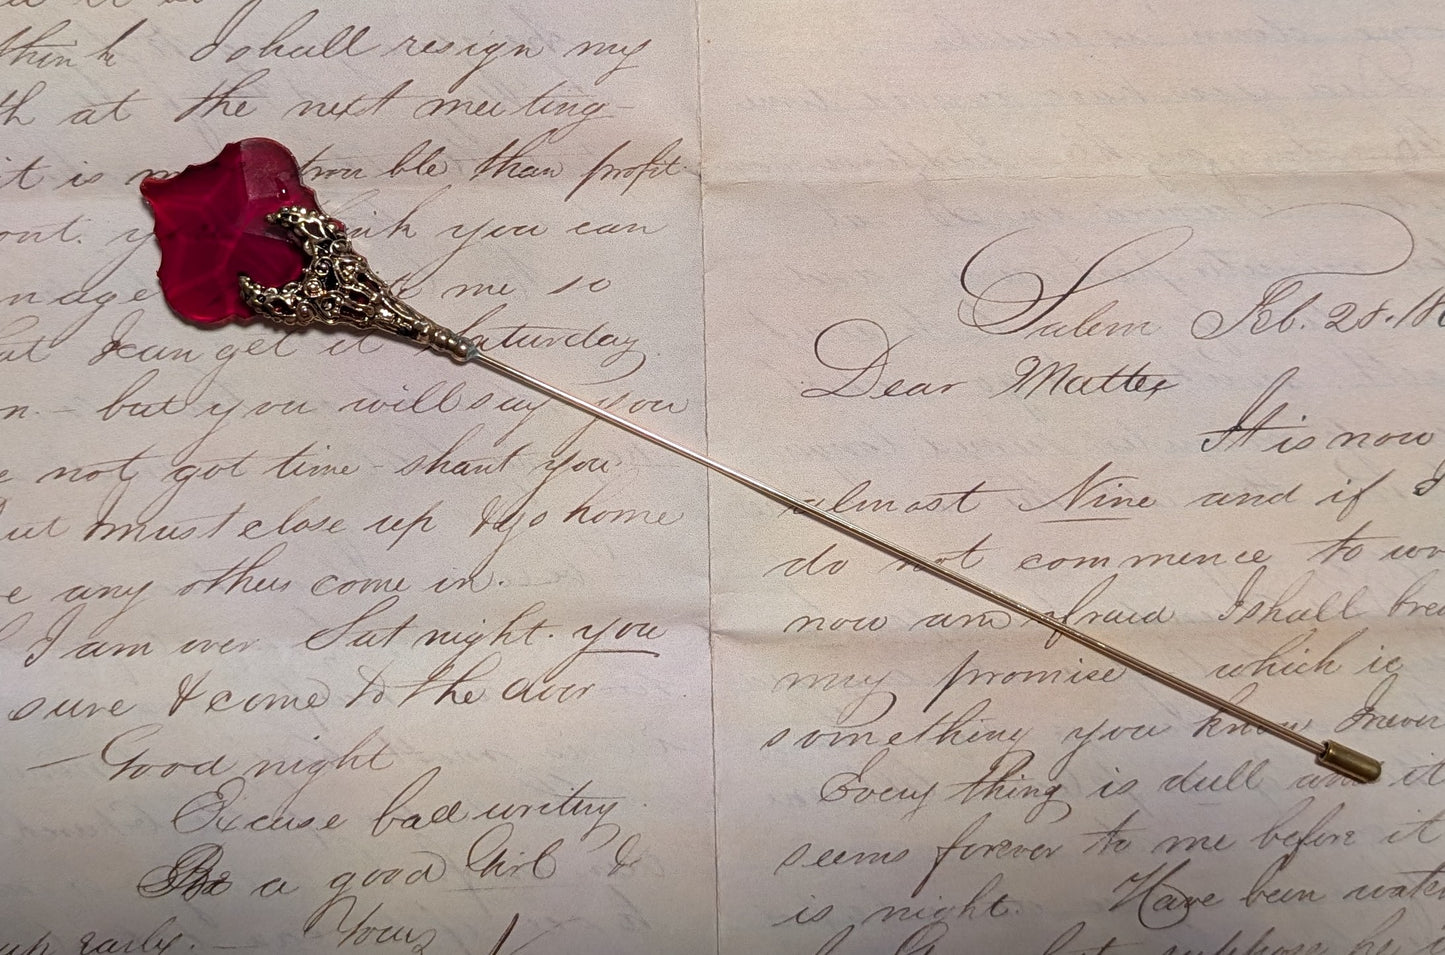 think I shall resign my
th at the next meeting -
it is trouble than profit.
ont. you can
me so
at I can get it Saturday
n. - but you will say you
e not got time - shant you
but must close up & go home
e any others come in.
I am over Sat night. you
sure & come to the door
- Good night
Excuse bad writing
Be a good Girl &
up Early. - Yours
Salem Feb. 28. 18
Dear Mattee
It is now
almost Nine and if I
do not commence to wr
now am afraid I shall brea
my promise which is
something you know I never
Every thing is dull and it
seems forever to me before it
is night. Have been watch
but suppose he